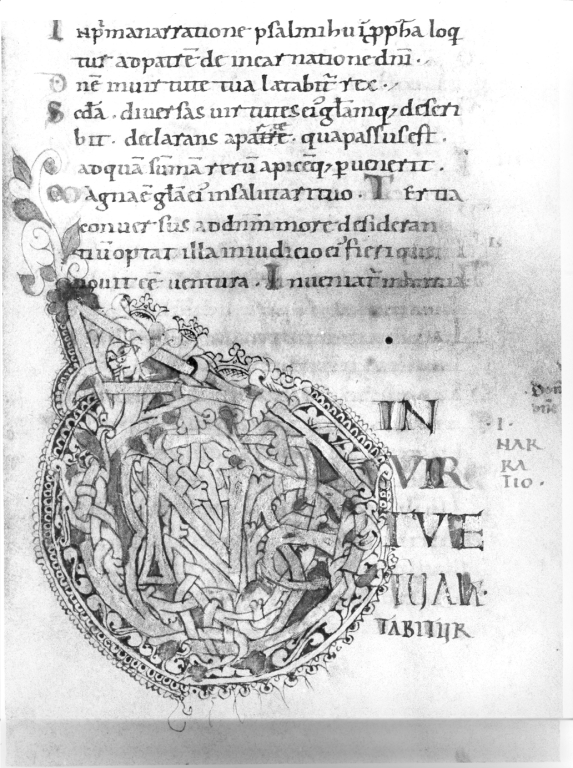 In p̄ma narratione psalmi hui᷒ pph̄a loq
tur ad patrē de incarnatione dn̄i.
Dn̄e in uirtute tua lætabit̄ rex.
Scd̄a. diuersas uirtutes ei᷒ gl̄amq; descri
bit. declarans apatrē. qua passus est.
ad quā sūmarū rerū apicēq; puenerit.
Magna ē gl̄a ei᷒ in salutari tuo. Tertia
conuersus ad dn̄m more desideran
tiū optat illa in iudicio ei᷒ fieri quæ
nouit eē uentura. Inueniat̄ man᷒ tua
D
IN
VIR
TVTE
TUA LÆ
TABITUR
I.
NAR
RA
TIO.